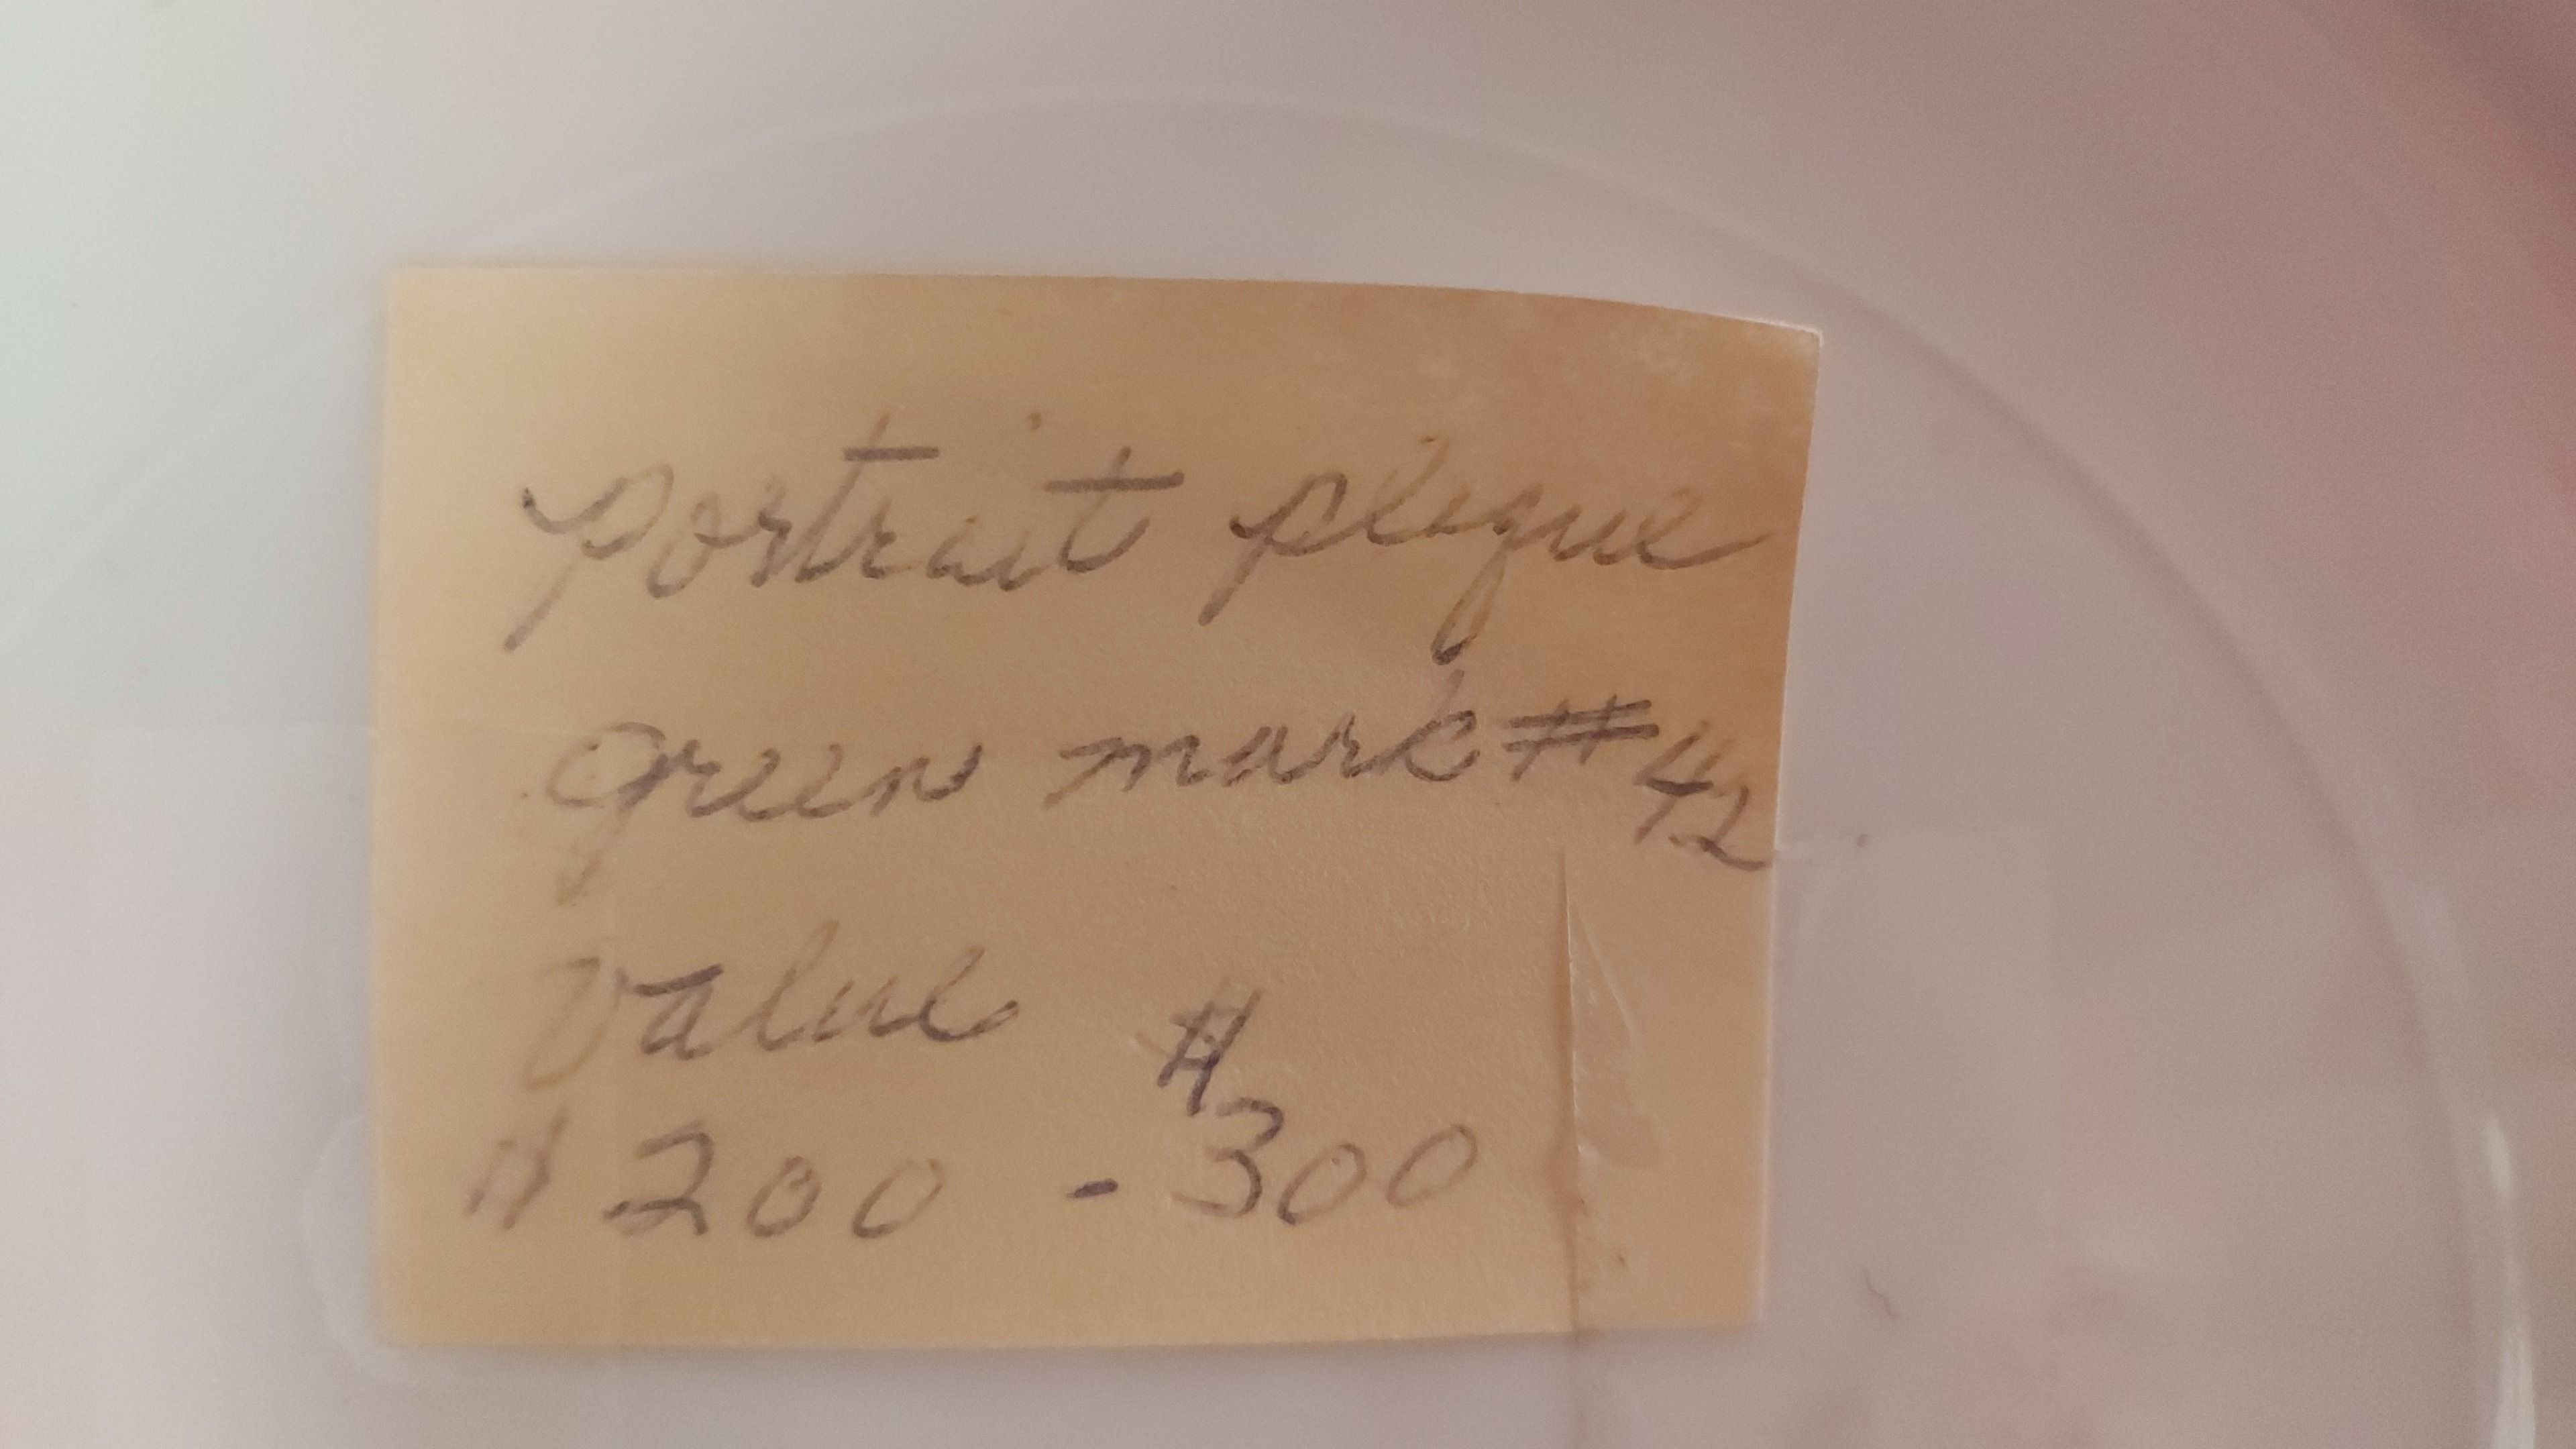 portrait plaque
green mark #42
Value
$200 - $300